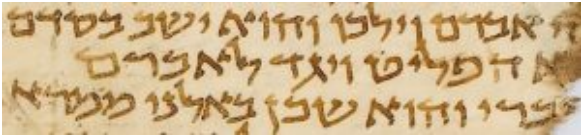 אברם וילכו והוא ישב בסדם
א הפליט ויגד לאברם
עברי והוא שכן באלני ממרא